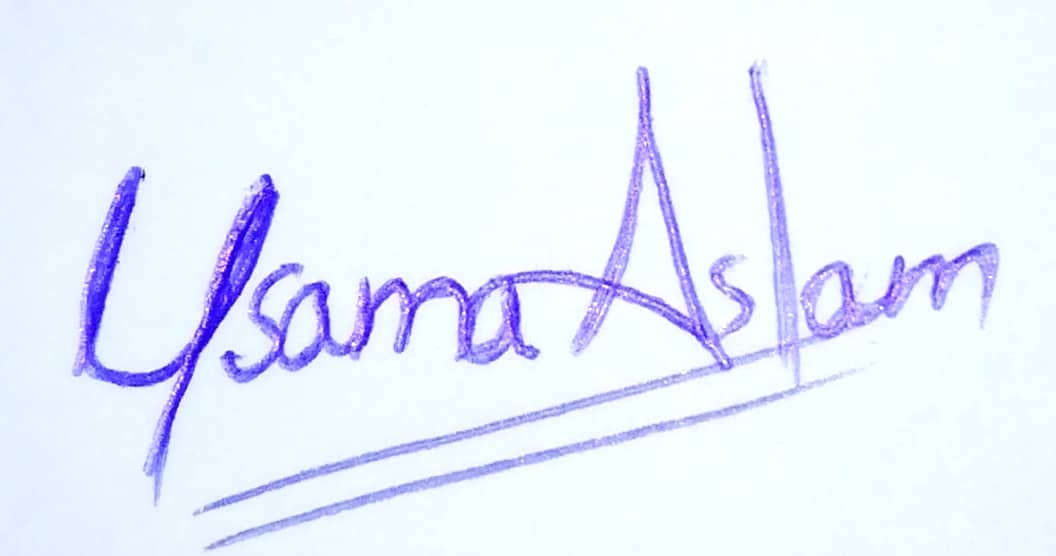 Usama Aslam